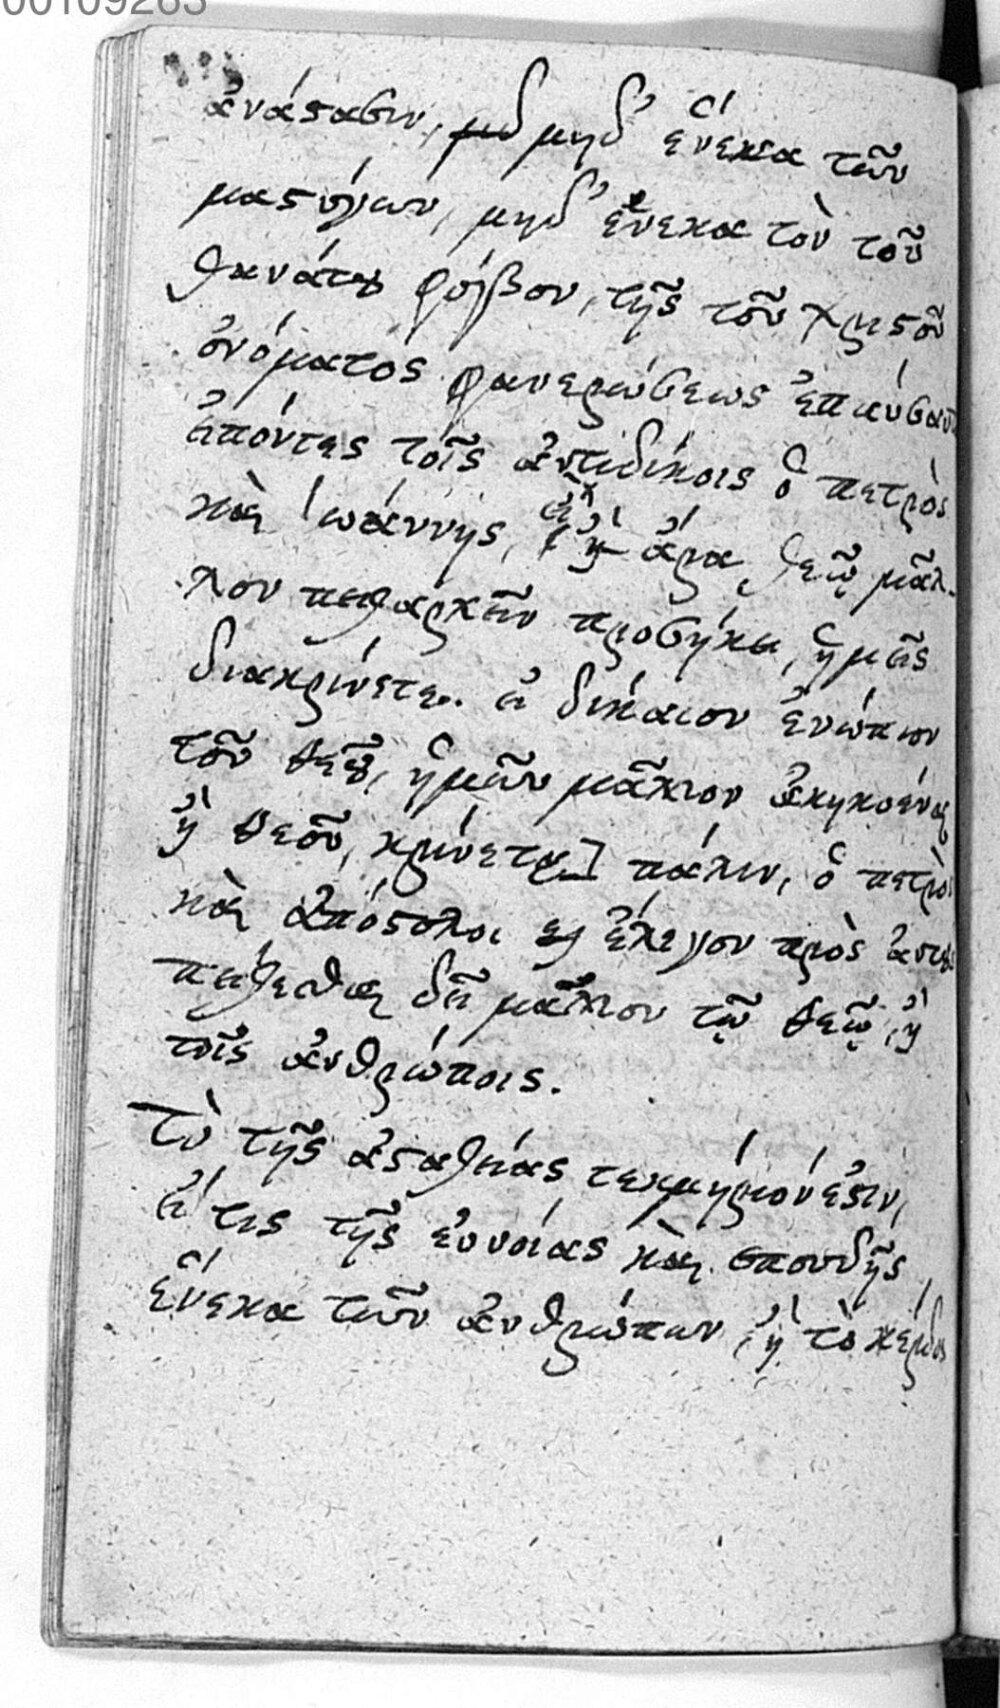 00109283
ἀνάστασιν, μηδ' ἕνεκα τῶν
μαστύγων, μηδ' ἕνεκα τὸν τοῦ
θανάτου φόβον, τῆς τοῦ χριστοῦ
ὀνόματος φανερώσεως ἐπαύσαντο
εἰπόντες τοῖς ἀντιδίκοις ὁ πετρὸς
καὶ Ἰωάννης, ἄρα θεῷ μᾶλ-
λον πειθαρχεῖν προσήκει, ἡμεῖς
διακρίνετε. εἰ δίκαιον ἐνώπιον
τοῦ θεοῦ, ἡμῶν μᾶλλον ἀκηκοέναι
ἢ θεοῦ, κρίνεται] πάλιν, ὁ πετρὸς
καὶ ἀπόστολοι ἔλεγον πρὸς
πείθεσθαι δεῖ μᾶλλον τῷ θεῷ, ἢ
τοῖς ἀνθρώποις.
Τὸ τῆς ἀσταθείας τεκμήριόν ἐστιν,
εἴ τις τῆς εὐνοίας καὶ σπουδῆς
ἕνεκα τῶν ἀνθρώπων, ἢ τὸ κέρδος